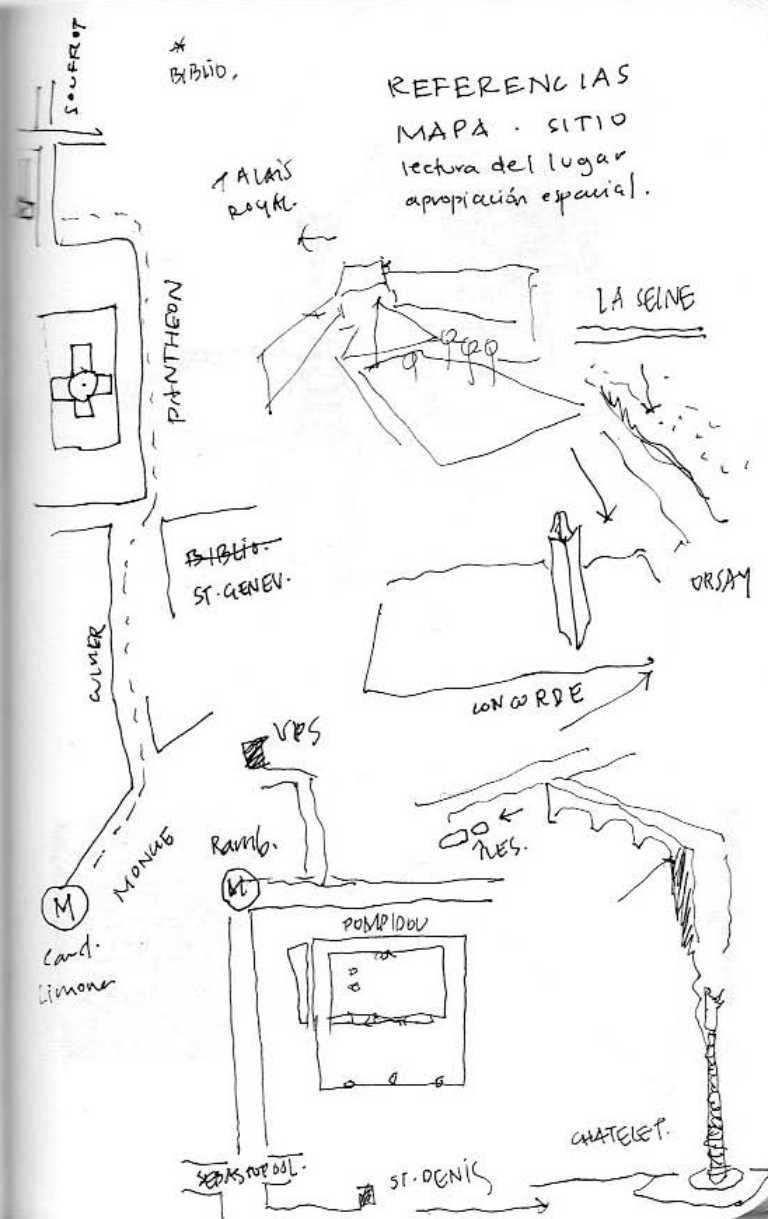 SOUFFLOT
*
BIBLIO.
REFERENCIAS
MAPA . SITIO
lectura del lugar
apropiación espacial.
PALAIS
ROYAL.
LA SEINE
PANTHEON
BIBLIO.
ST. GENEV.
ORSAY
CONCORDE
VPS
MONGE
Ramb.
ILES.
M
M
Card.
Limone
POMPIDOU
CHATELET.
SEBASTOPOOL.
ST. DENIS